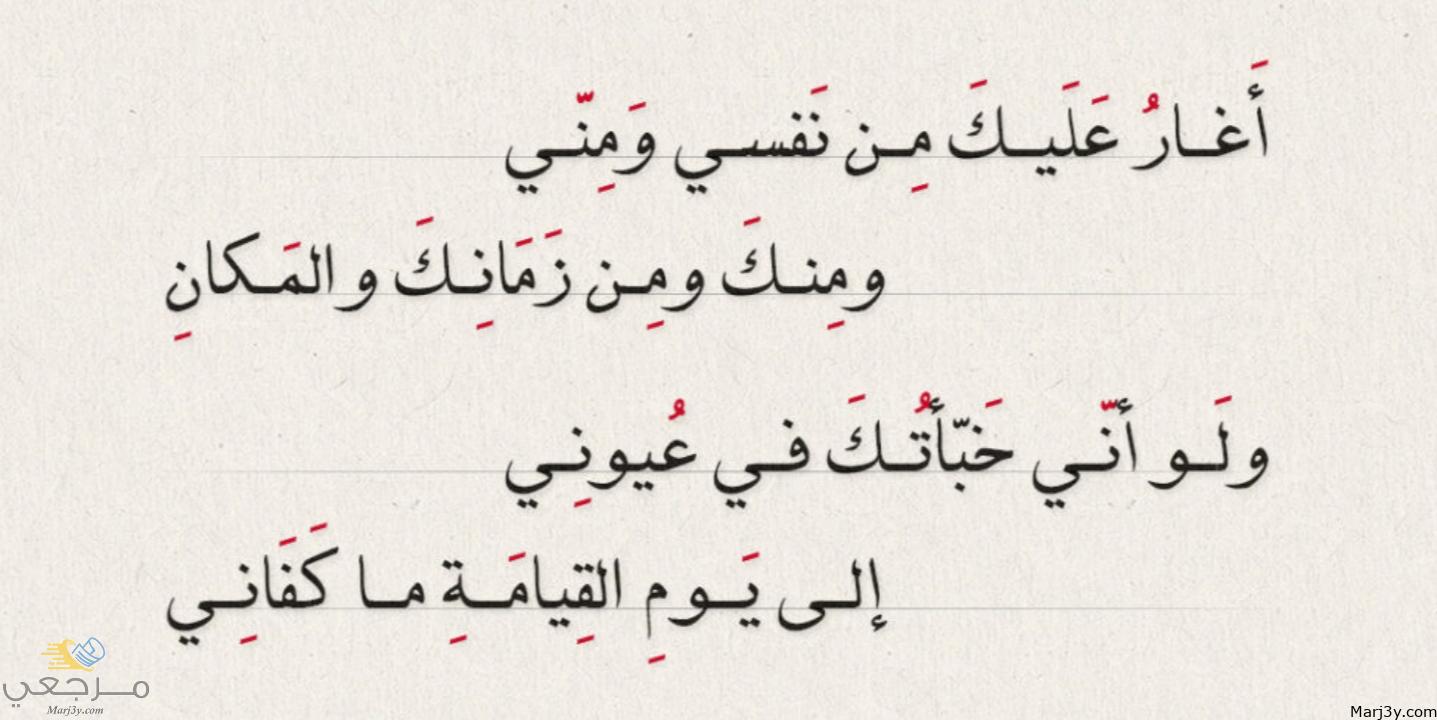 أَغـارُ عَلَيـكَ مِـن نَفسـي وَمِنّـي
ومِنـكَ ومِـن زَمَانِـكَ والمَـكانِ
ولَـو أنّـي خَبّأتُـكَ فـي عُيونِـي
إلـى يَـومِ القِيامَـةِ مـا كَفَانِـي
مـرجـعـي
Marj3y.com
Marj3y.com